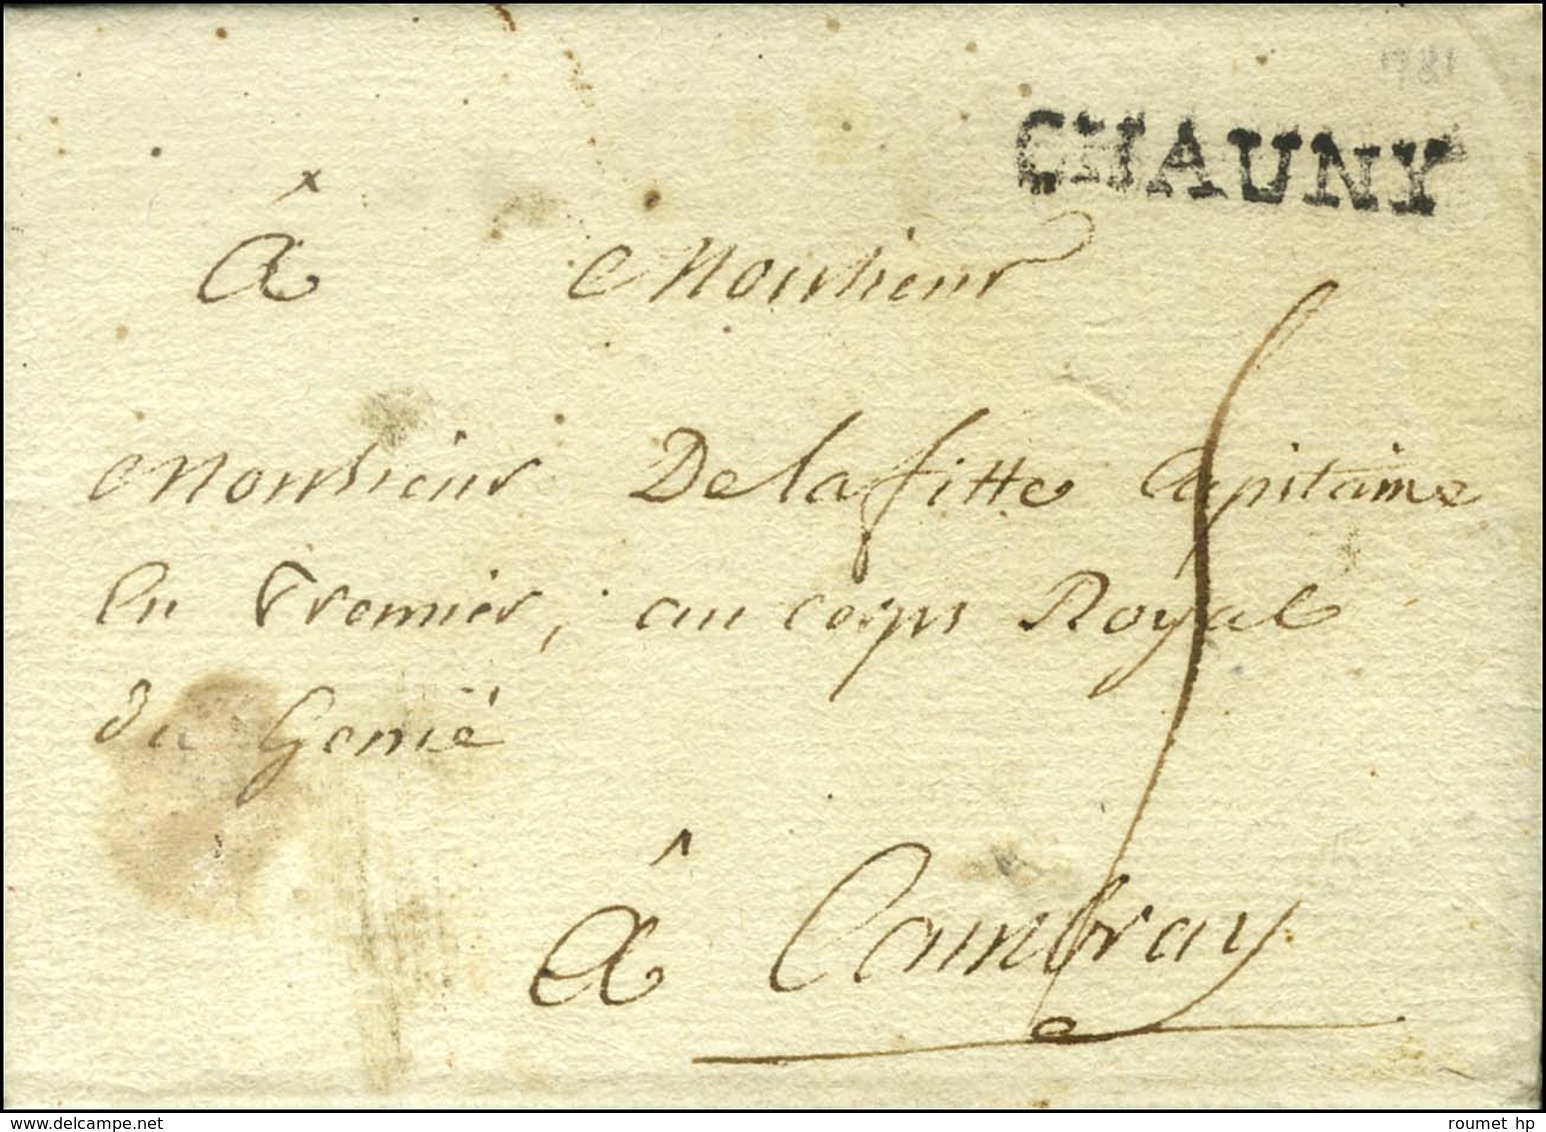 1781
CHAUNY
â Monsieur
Monsieur De lafitte Capitaine
En Premier, au corps Royal
du Genié
â Cambray
delcampe.net
roumet_hp